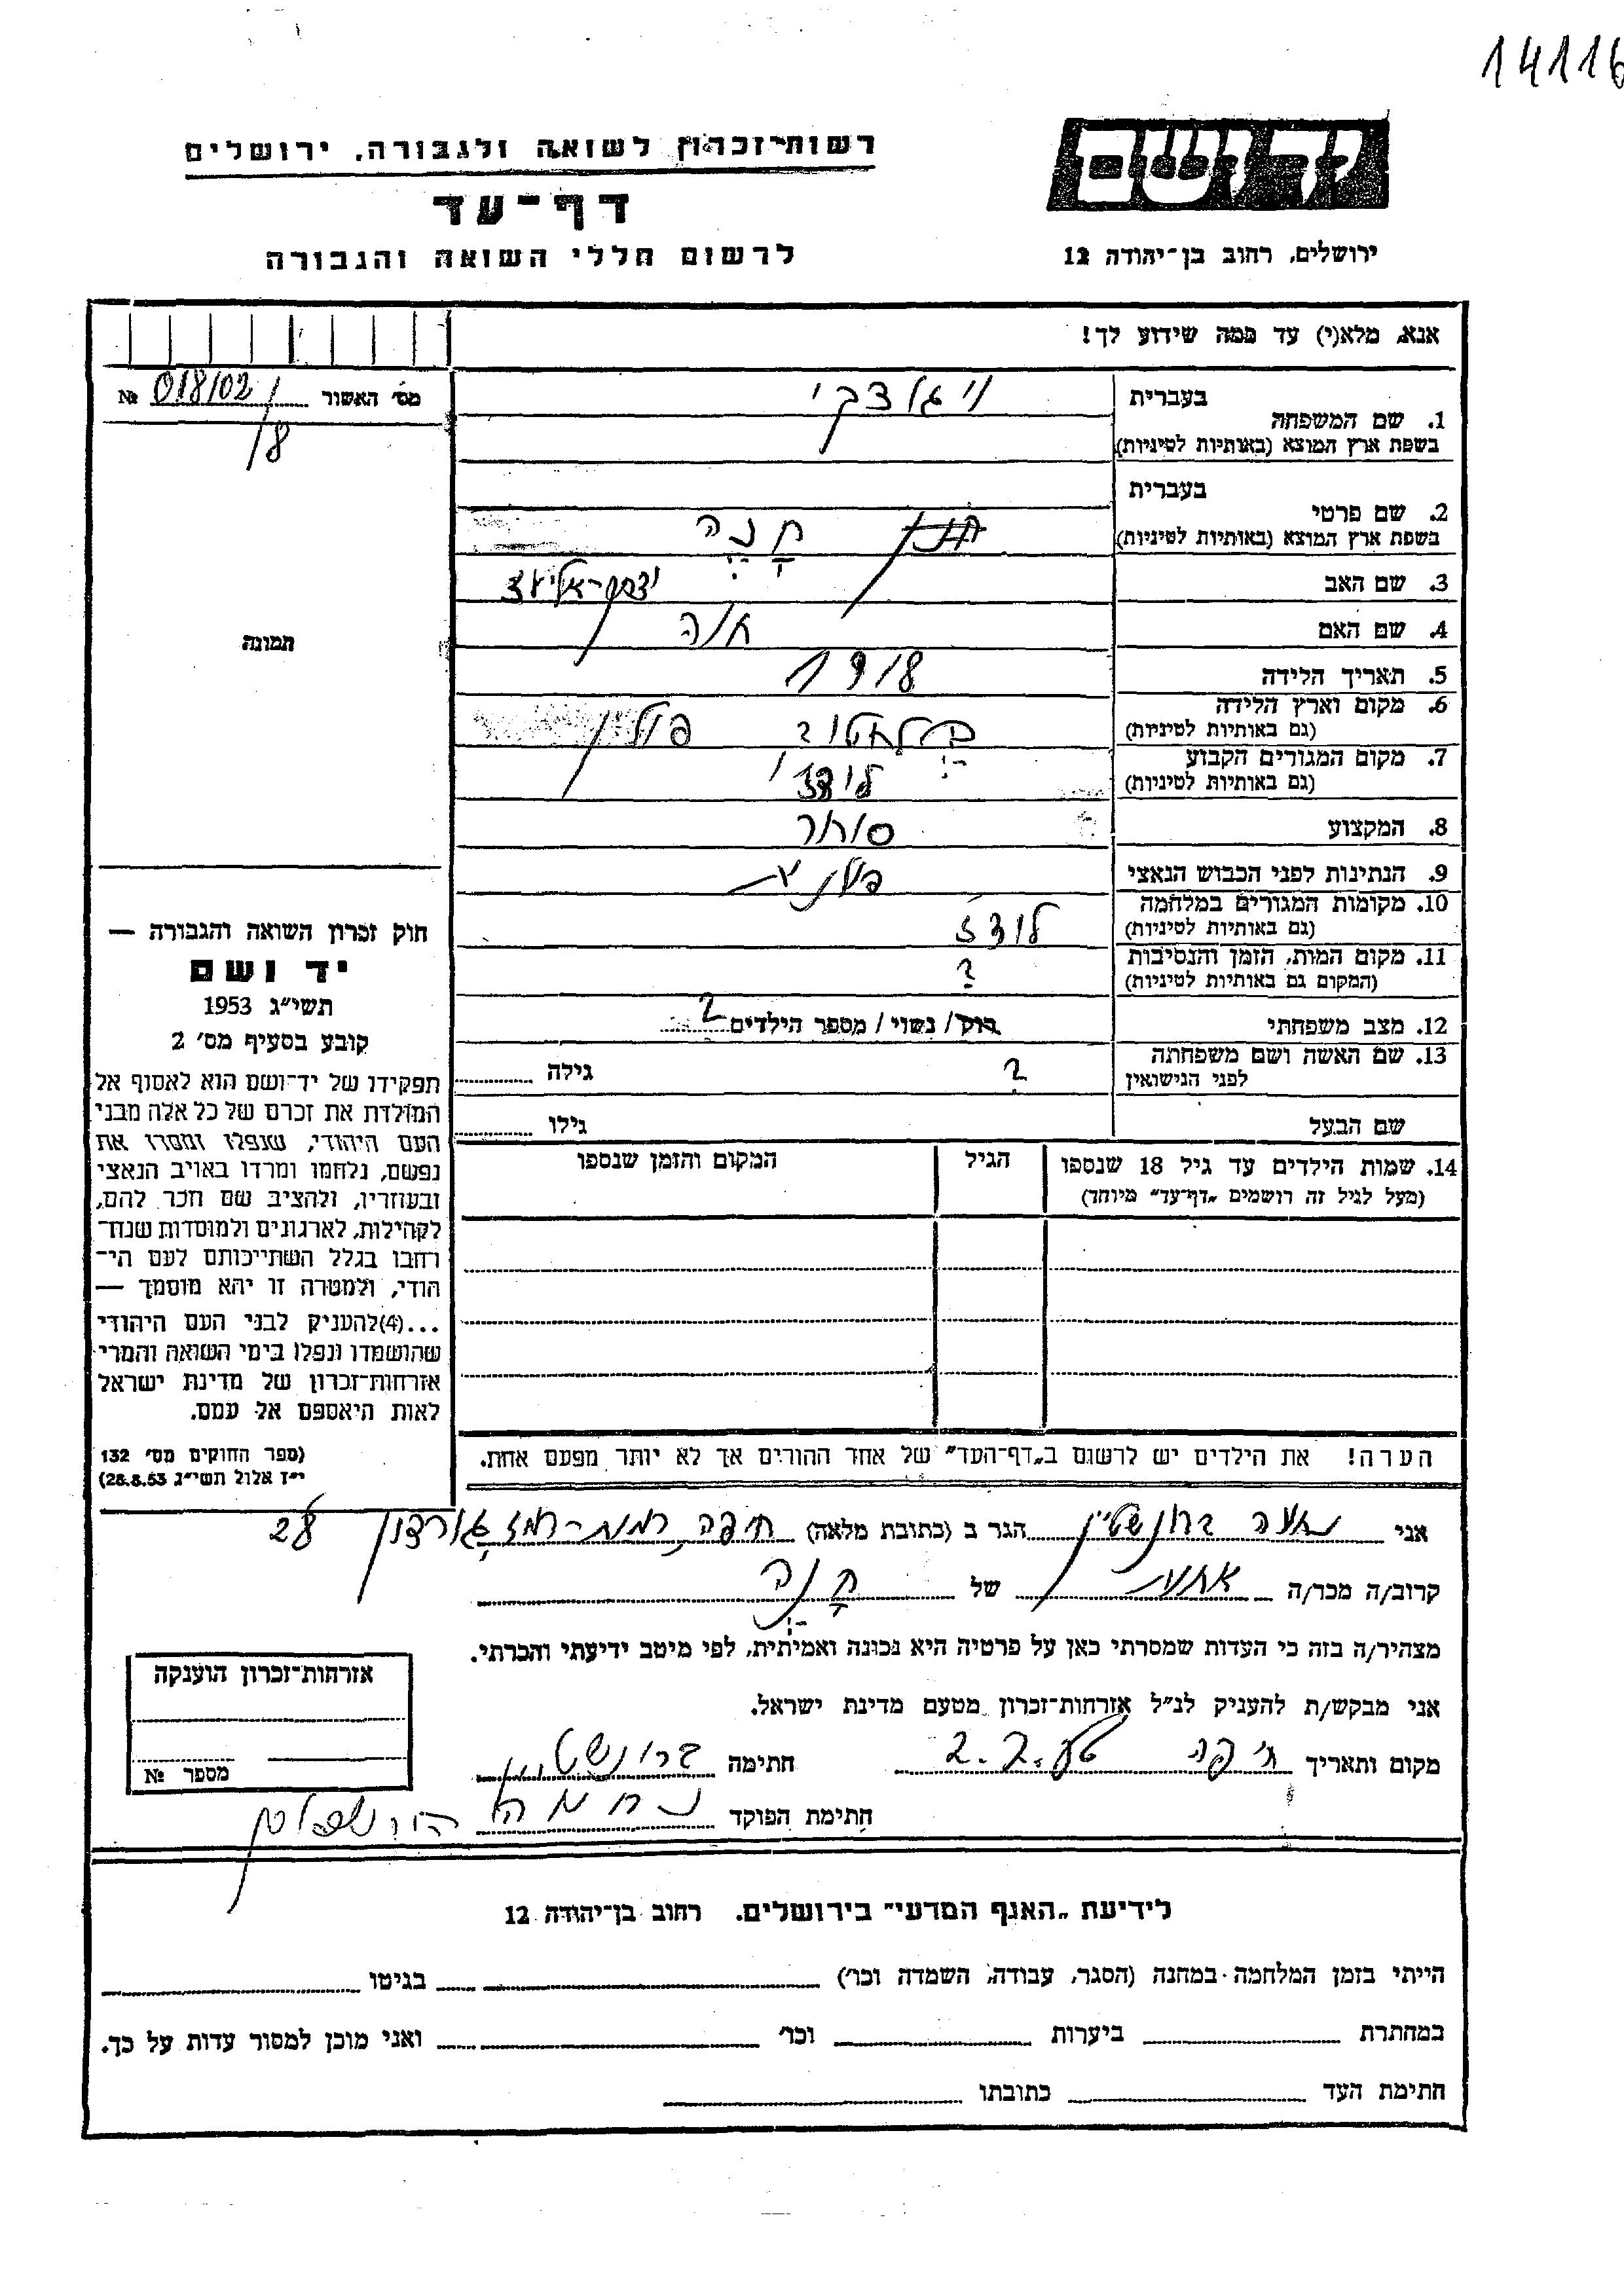 14116
רשות־זכרון לשואה ולגבורה, ירושלים
דף־עד
לרשום חללי השואה והגבורה
יד ושם
ירושלים, רחוב בן־יהודה 12
אנא, מלא(י) עד כמה שידוע לך!
מס׳ האשור 018/02 №
18
תמונה
בעברית
1. שם המשפחה
בשפת ארץ המוצא (באותיות לטיניות)
בעברית
2. שם פרטי חנה
בשפת ארץ המוצא (באותיות לטיניות)
3. שם האב
4. שם האם חוה
5. תאריך הלידה 1918
6. מקום וארץ הלידה פולין
(גם באותיות לטיניות)
7. מקום המגורים הקבוע לודז׳
(גם באותיות לטיניות)
8. המקצוע סוחר
9. הנתינות לפני הכבוש הנאצי פולנית
10. מקומות המגורים במלחמה לודז׳
(גם באותיות לטיניות)
11. מקום המות, הזמן והנסיבות ?
(המקום גם באותיות לטיניות)
12. מצב משפחתי רוק/ נשוי/ מספר הילדים 2
13. שם האשה ושם משפחתה ? גילה
לפני הנישואין
שם הבעל גילו
14. שמות הילדים עד גיל 18 שנספו הגיל המקום והזמן שנספו
(מעל לגיל זה רושמים „דף־עד״ מיוחד)
הערה! את הילדים יש לרשום ב„דף־העד״ של אחד ההורים אך לא יותר מפעם אחת.
חוק זכרון השואה והגבורה —
יד ושם
תשי״ג 1953
קובע בסעיף מס׳ 2
תפקידו של יד־ושם הוא לאסוף אל
המולדת את זכרם של כל אלה מבני
העם היהודי, שנפלו ומסרו את
נפשם, נלחמו ומרדו באויב הנאצי
ובעוזריו, ולהציב שם וזכר להם,
לקהילות, לארגונים ולמוסדות שנח־
רבו בגלל השתייכותם לעם הי־
הודי, ולמטרה זו יהא מוסמך —
...(4)להעניק לבני העם היהודי
שהושמדו ונפלו בימי השואה והמרי
אזרחות־זכרון של מדינת ישראל
לאות היאספם אל עמם.
(ספר החוקים מס׳ 132
י״ז אלול תשי״ג 28.8.53)
אני נחמה ברונשטיין הגר ב (כתובת מלאה) חיפה, רמת-רמז, גורדון 28
קרוב/ה מכר/ה אחות של חנה
מצהיר/ה בזה כי העדות שמסרתי כאן על פרטיה היא נכונה ואמיתית, לפי מיטב ידיעתי והכרתי.
אני מבקש/ת להעניק לנ״ל אזרחות־זכרון מטעם מדינת ישראל.
מקום ותאריך חיפה חתימה ברונשטיין
חתימת הפוקד נחמה
אזרחות־זכרון הוענקה
מספר №
לידיעת „האגף המדעי״ בירושלים, רחוב בן־יהודה 12
הייתי בזמן המלחמה במחנה (הסגר, עבודה, השמדה וכו׳) בגיטו
במחתרת ביערות וכו׳ ואני מוכן למסור עדות על כך.
חתימת העד כתובתו